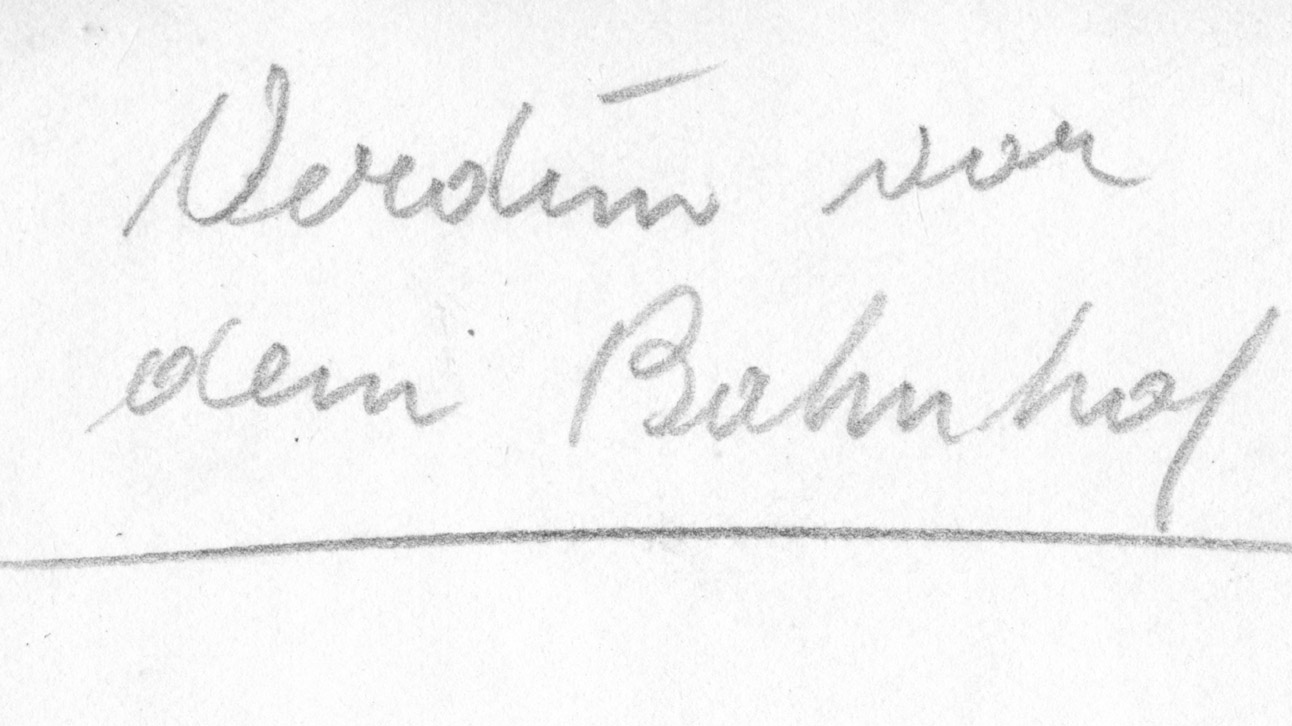 Verdun vor
dem Bahnhof